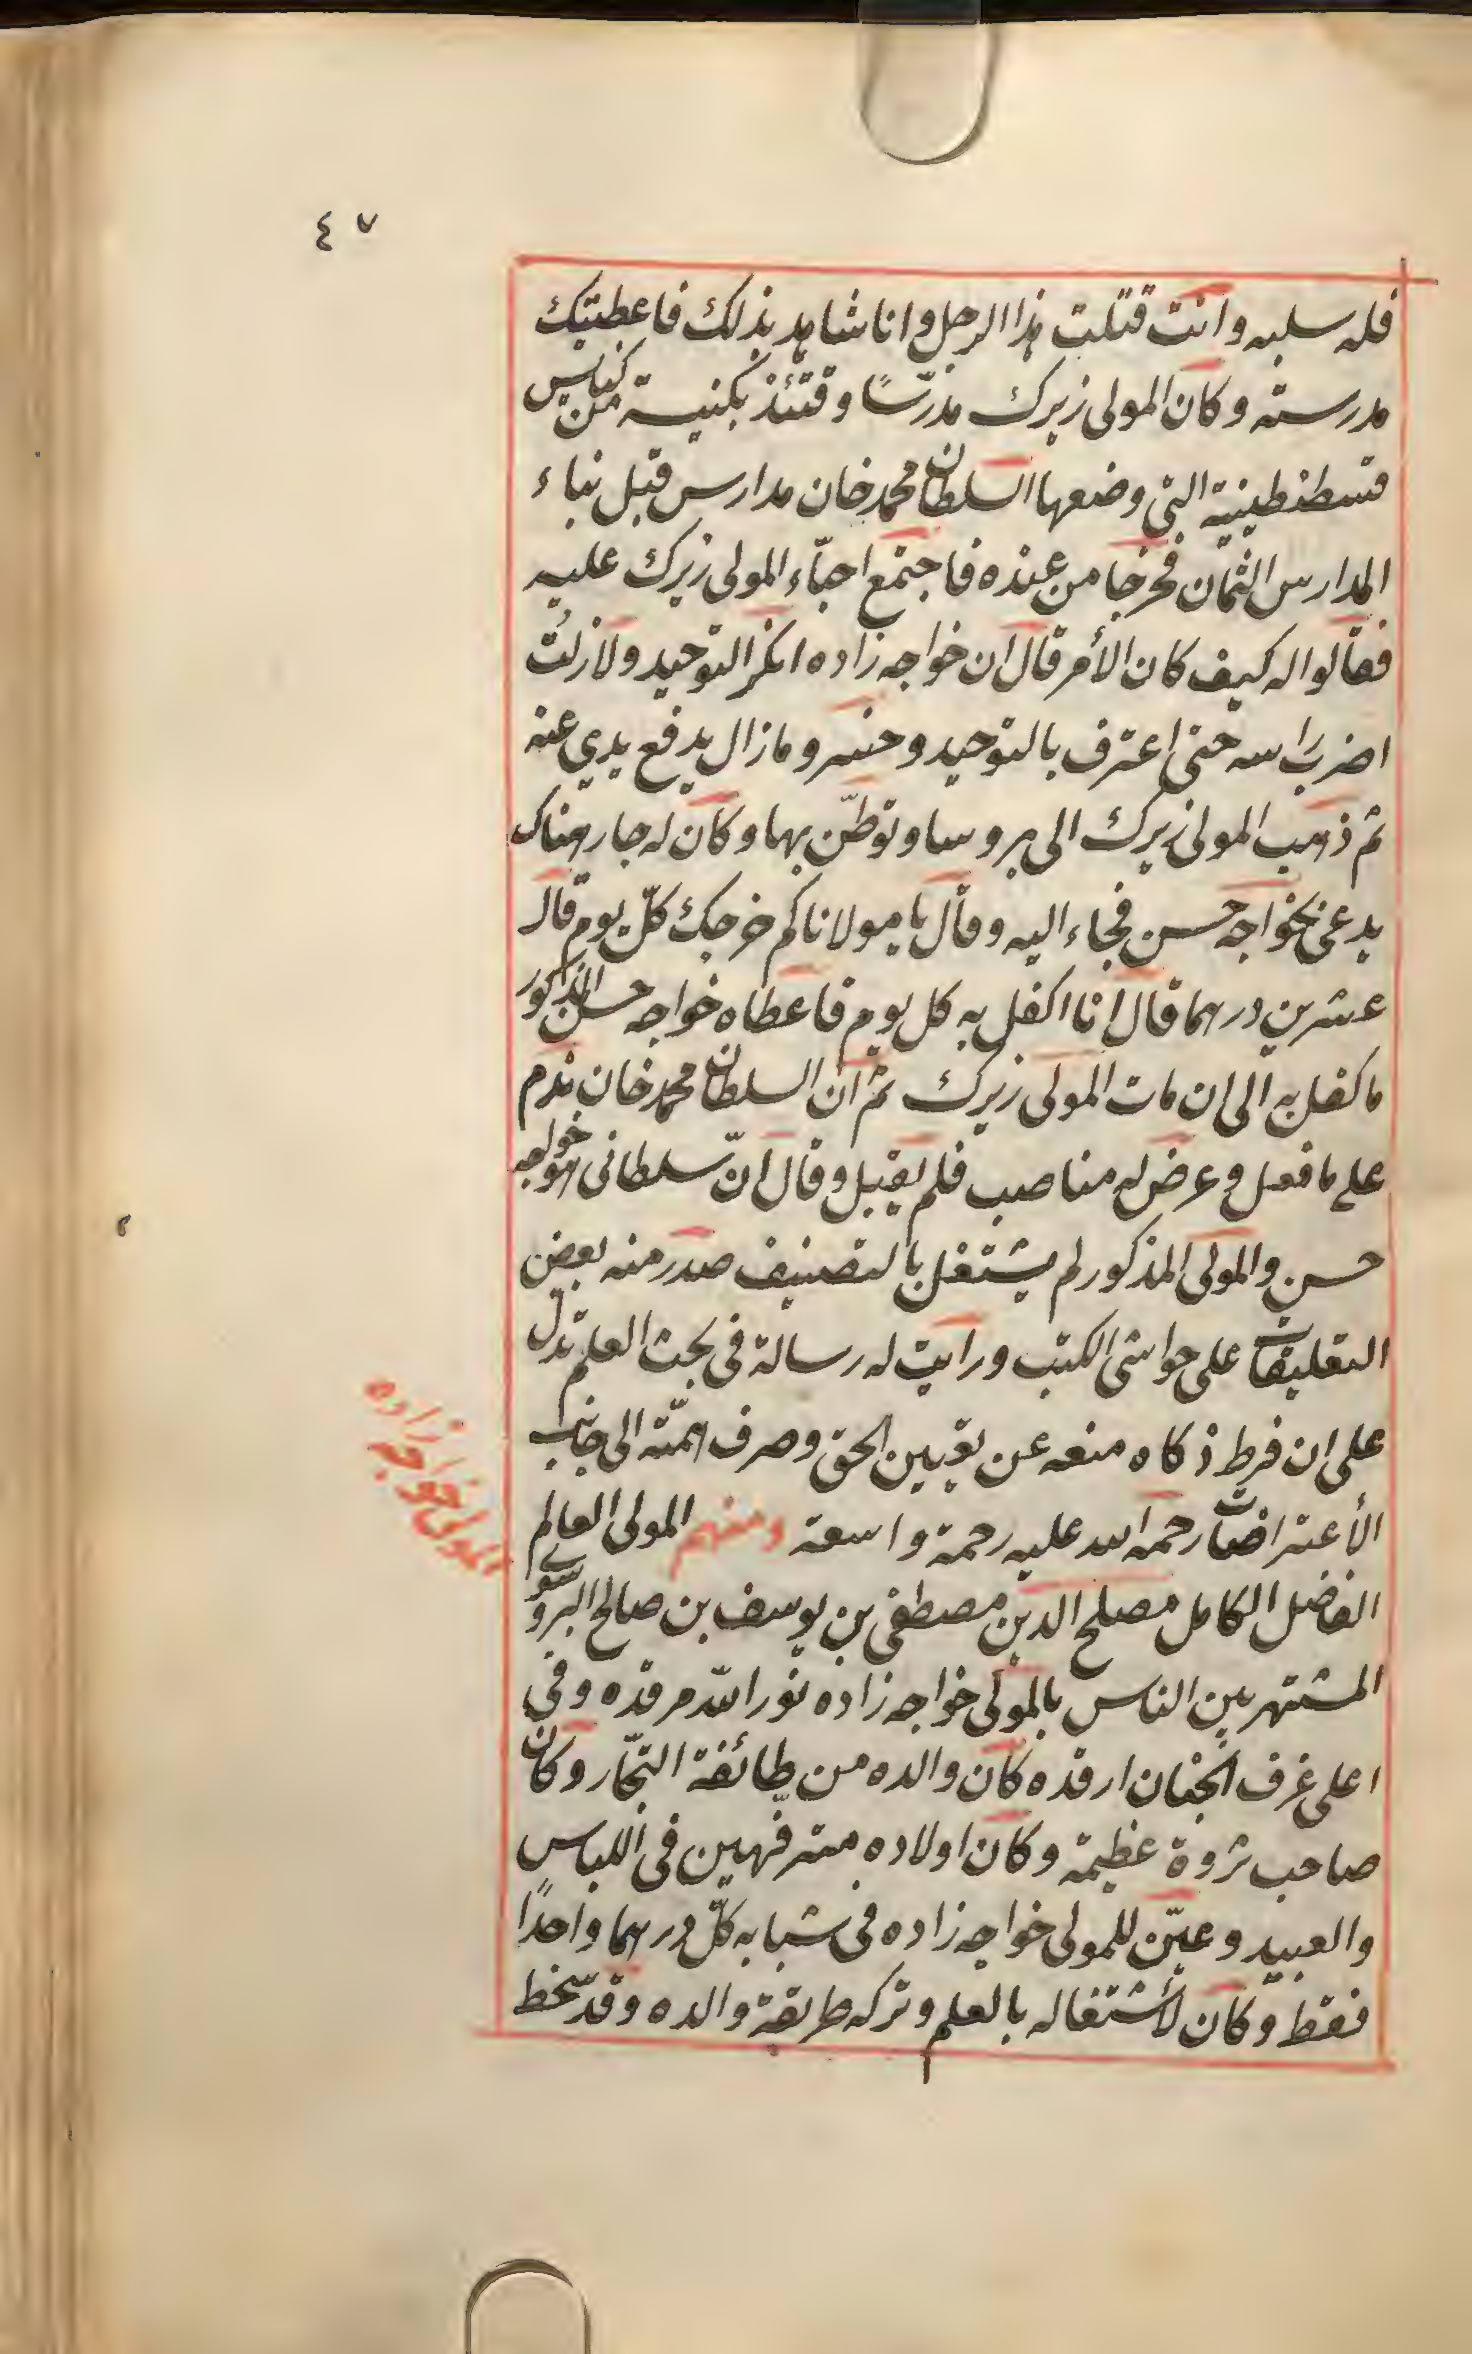 ٤٧
فله سلبه وانت قتلت هذا الرجل وانا شاهد بذلك فاعطيتك
مدرسته وكان المولى زيرك مدرّسًا وقتئذ بكنيسة من كنايس
قسطنطينية التي وضعها السلطان محمد خان مدارس قبل بناء
المدارس الثمان فخرجا من عنده فاجتمع احبّاء المولى زيرك عليه
فقالوا له كيف كان الأمر قال ان خواجه زاده انكر التوحيد ولا زلت
اضرب راسه حتى اعترف بالتوحيد وما زال يدفع يدي عنه
ثم ذهب المولى زيرك الى بروسا وتوطّن بها وكان له جار هناك
يدعى بخواجه حسن فجاء اليه وقال يا مولانا كم خرجك كلّ يوم قال
عشرين درهما قال انا اكفل به كل يوم فاعطاه خواجه حسن المذكور
ما كفل به الى ان مات المولى زيرك ثم ان السلطان محمد خان ندم
على ما فعل وعرض له مناصب فلم يقبل وقال انّ سلطاني هو خواجه
حسن والمولى المذكور لم يشتغل بالتصنيف صدر منه بعض
التعليقات على حواشي الكتب ورايت له رسالة في بحث العلم تدل
على ان فرط ذكاه منعه عن تعيين الحق وصرف همّته الى جانب
الأعتراضات رحمه الله عليه رحمة واسعة ومنهم المولى العالم
الفاضل الكامل مصلح الدين مصطفى بن يوسف بن صالح البروسوي
المولى خواجه زاده
المشتهر بين الناس بالمولى خواجه زاده نور الله مرقده وفي
اعلى غرف الجنان ارقده كان والده من طائفة التجّار وكان
صاحب ثروة عظيمة وكان اولاده مترفهين في اللباس
والعبيد وعيّن للمولى خواجه زاده في شبابه كلّ درهما واحدًا
فقط وكان لأشتغاله بالعلم وتركه طريقة والده وقد سخط